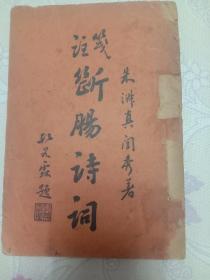 朱淑真閨秀著
箋註
斷腸詩詞
題